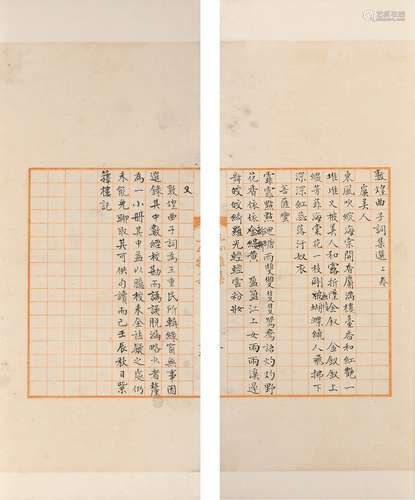 敦煌曲子詞集選上卷
虞美人
東風吹綻海棠開香麝滿樓臺香和紅艷一
堆堆又被美人和露折墜金釵 金釵釵上
綴芳菲海棠花一枝剛被蝴蝶繞人飛拂下
深深紅蕊落汙奴衣
菩薩蠻
霏霏點點迴塘雨雙雙隻隻鴛鴦語灼灼野
花香依依金縷黃 盈盈江上女兩兩溪邊
舞皎皎綺羅光輕輕雲粉妝
又
敦煌曲子詞為王重民所輯緣窗無事因
選錄其中數經校勘而譌誤脫漏略少者釐
為一小冊其中並以臆校未全詰疑之處仍
未能免聊取其可供句讀而已壬辰秋日
樓記